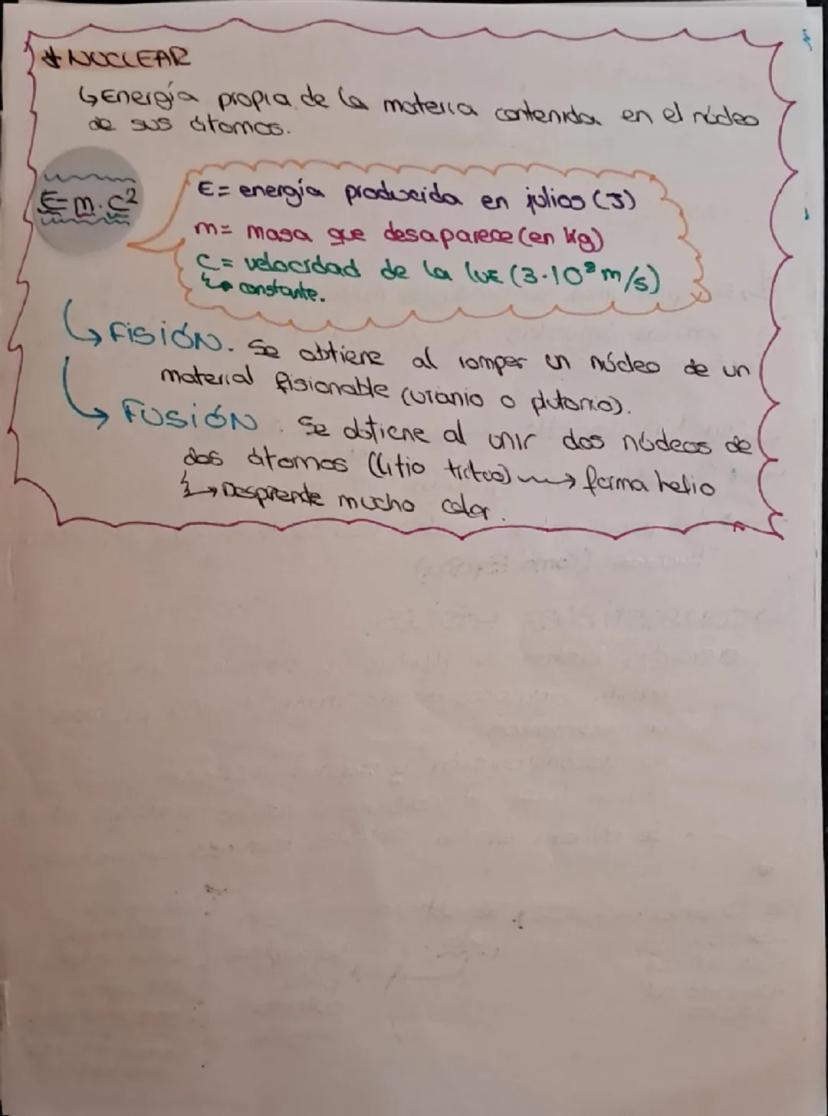 * NUCLEAR
↳ Energía propia de la materia contenida en el núcleo
de sus átomos.
E=m·c²
E= energía producida en julios (J)
m= masa que desaparece (en kg)
c= velocidad de la luz (3·10⁸ m/s)
↳ constante.
↳ FISIÓN. Se obtiene al romper un núcleo de un
material fisionable (uranio o plutonio).
↳ FUSIÓN. Se obtiene al unir dos núcleos de
dos átomos (litio tritio) ⟿ forma helio
↳ Desprende mucho calor.